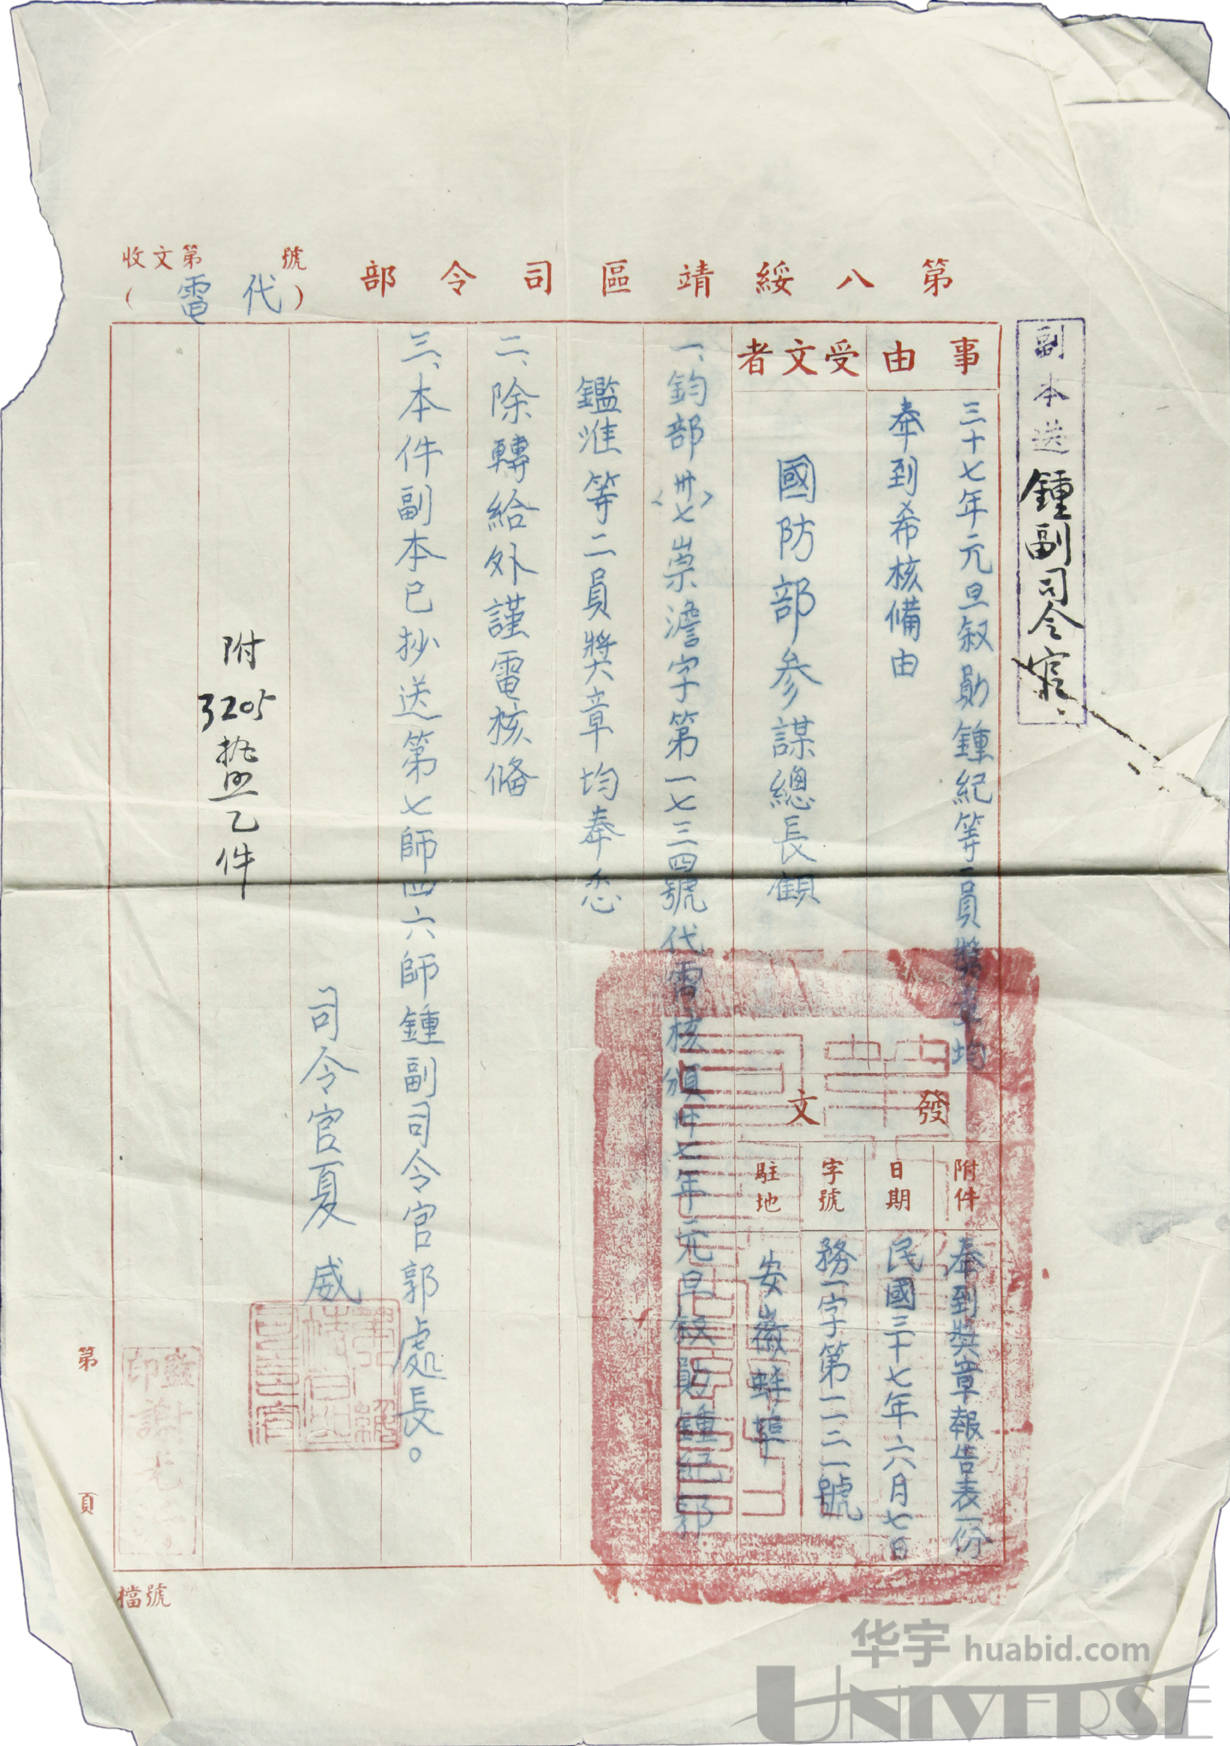 第八綏靖區司令部（代電）
收文第　號
副本送鍾副司令官
事由
三十七年元旦叙勛鍾紀等二員獎章均
奉到希核備由
受文者
國防部參謀總長顧
發文
附件
奉到獎章報告表一份
日期
民國三十七年六月七日
字號
務一字第一一二一號
駐地
安徽蚌埠
一、鈞部〈卅七〉崇澹字第一七三四號代電核頒卅七年元旦叙勛鍾紀郭
鑑淮等二員獎章均奉悉
二、除轉給外謹電核備
三、本件副本已抄送第七師四六師鍾副司令官郭處長。
司令官夏威
附
3205
乙件
監印謝
第　頁
檔號
华宇 huabid.com
UNIVERSE